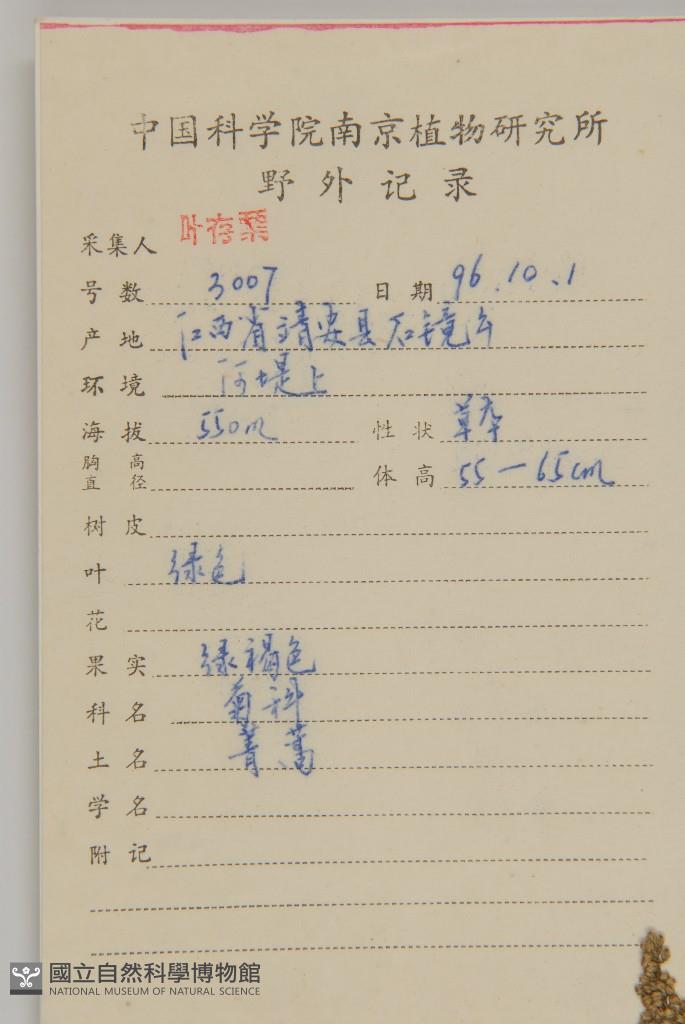 中国科学院南京植物研究所
野外记录
采集人 叶存粟
号数 3007 日期 96.10.1
产地 江西省靖安县石镜乡
环境 河堤上
海拔 550m 性状 草本
胸高直径 体高 55-65cm
树皮
叶 绿色
花
果实 绿褐色
科名 菊科
土名 菁蒿
学名
附记
國立自然科學博物館
NATIONAL MUSEUM OF NATURAL SCIENCE